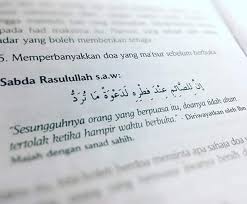 pada had makanan itu,
adar yang boleh memberikan tenaga
5. Memperbanyakkan doa yang ma'tsur sebelum berbuka
Sabda Rasulullah s.a.w:
إِنَّ لِلصَّائِمِ عِنْدَ فِطْرِهِ لَدَعْوَةً مَا تُرَدُّ
"Sesungguhnya orang yang berpuasa itu, doanya tidak akan
tertolak ketika hampir waktu berbuka." - Diriwayatkan oleh Ibn
Majah dengan sanad sahih.
meminta apa sahaja doa